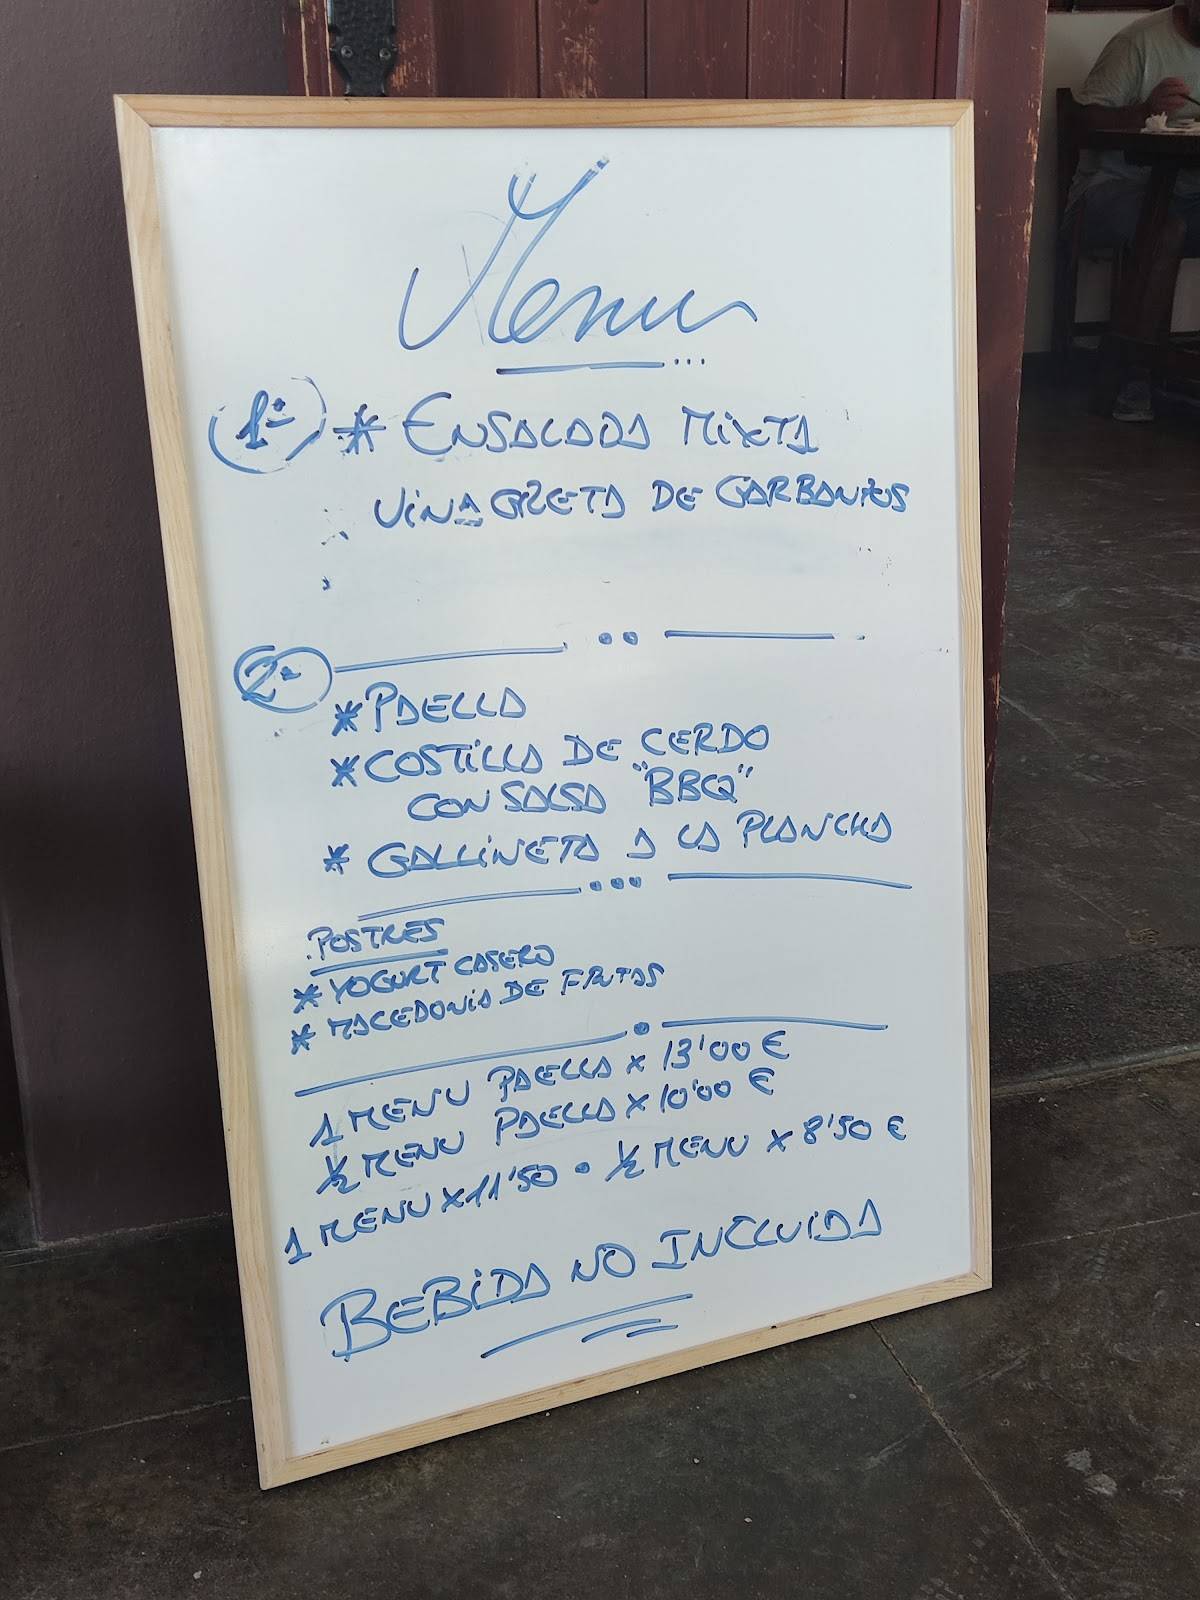 Menu...
1º * ENSALADA MIXTA
VINAGRETA DE GARBANZOS
2º
* PAELLA
* COSTILLA DE CERDO
CON SALSA "BBQ"
* GALLINETA A LA PLANCHA
POSTRES
* YOGURT CASERO
* MACEDONIA DE FRUTAS
1 MENU PAELLA x 13'00 €
½ MENU PAELLA x 10'00 €
1 MENU x 11'50 • ½ MENU x 8'50 €
BEBIDA NO INCLUIDA